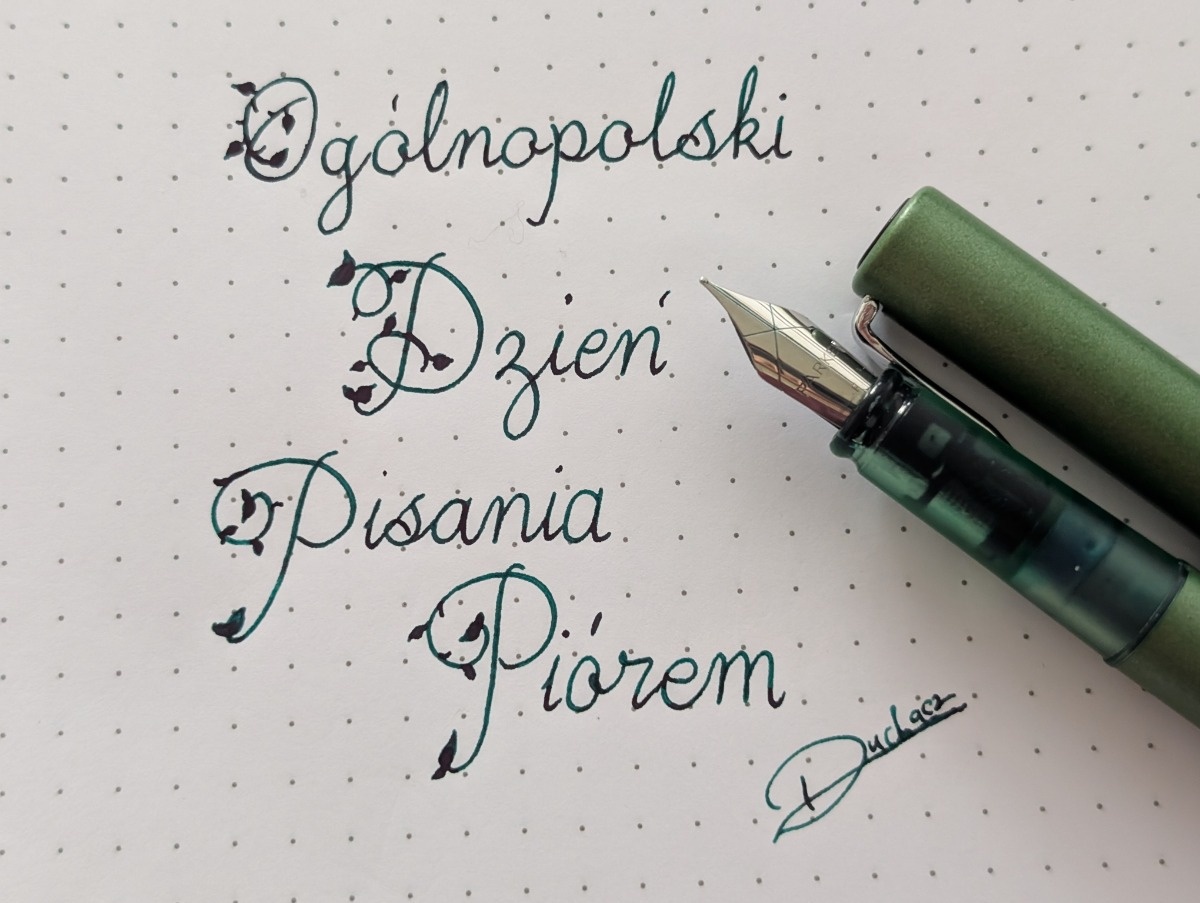 Ogólnopolski
Dzień
Pisania
Piórem
Duchacz
PARKER